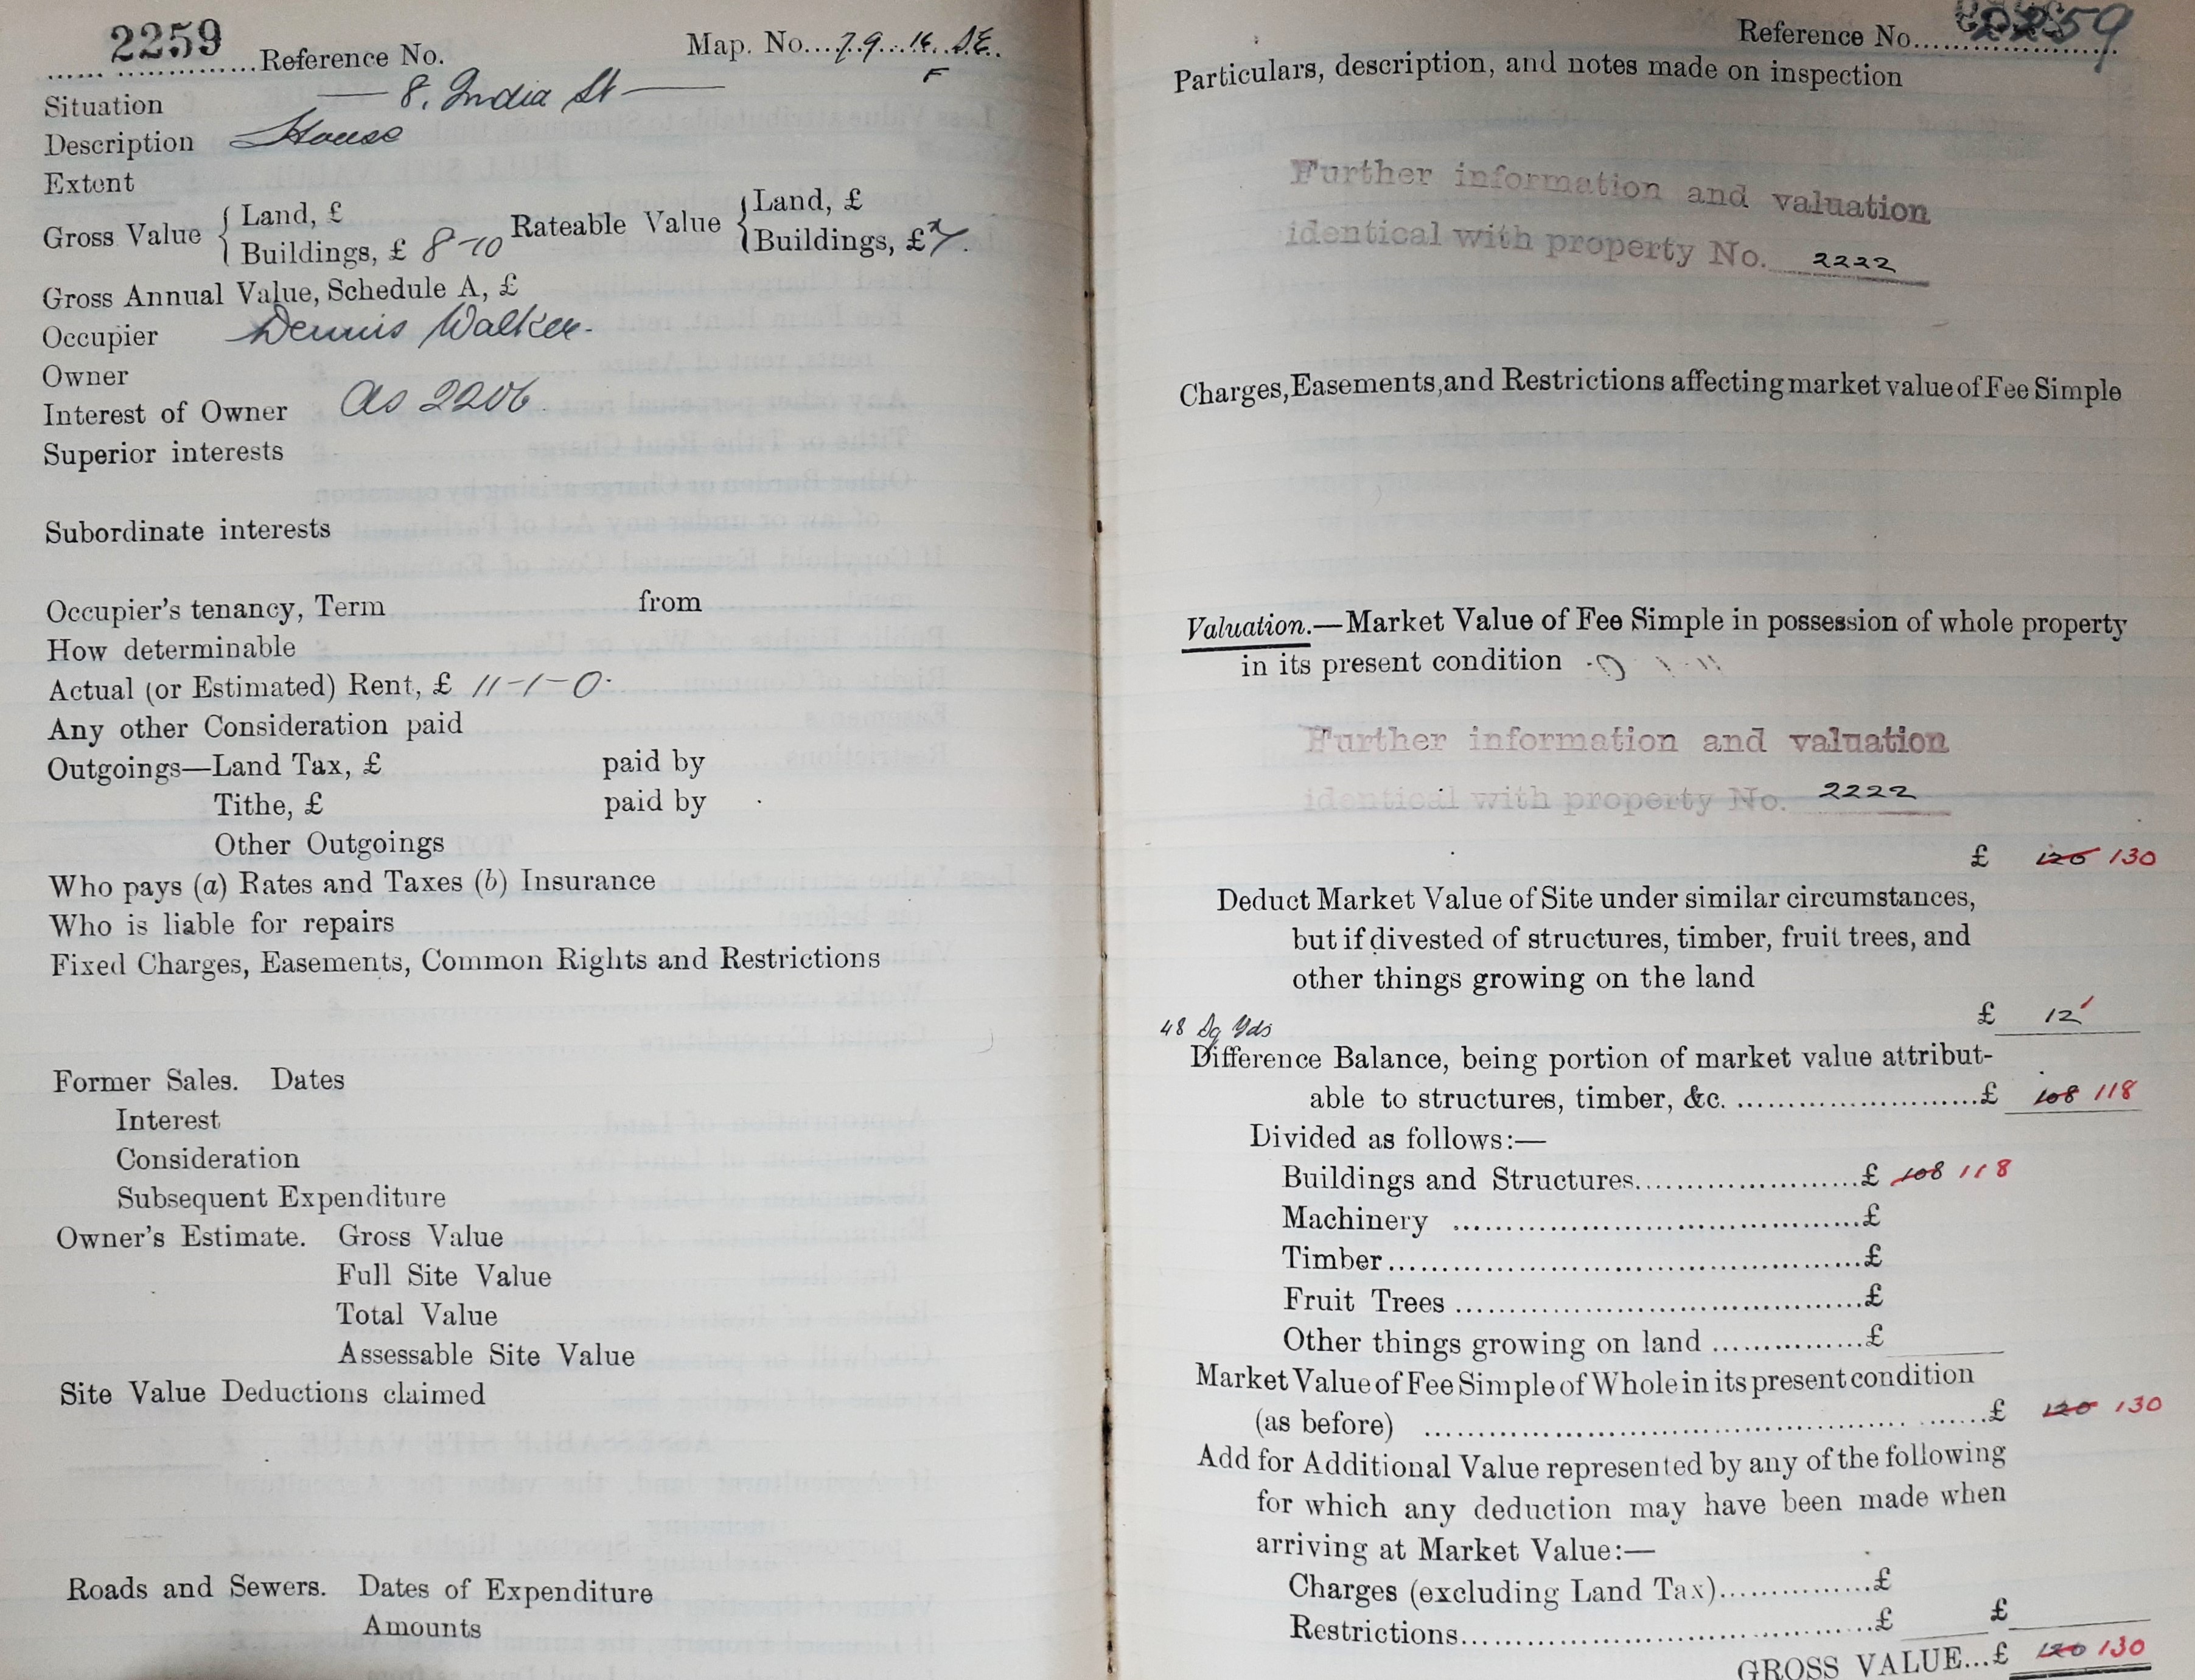 2259 Reference No. Map. No. 79.16.S.E.
F
Situation — 8, India St —
Description House
Extent
Gross Value { Land, £
Buildings, £ 8-10
Rateable Value { Land, £
Buildings, £
Gross Annual Value, Schedule A, £
Occupier Dennis Walker.
Owner
Interest of Owner As 2206.
Superior interests
Subordinate interests
Occupier's tenancy, Term from
How determinable
Actual (or Estimated) Rent, £ 11-1-0.
Any other Consideration paid
Outgoings—Land Tax, £ paid by
Tithe, £ paid by
Other Outgoings
Who pays (a) Rates and Taxes (b) Insurance
Who is liable for repairs
Fixed Charges, Easements, Common Rights and Restrictions
Former Sales. Dates
Interest
Consideration
Subsequent Expenditure
Owner's Estimate. Gross Value
Full Site Value
Total Value
Assessable Site Value
Site Value Deductions claimed
Roads and Sewers. Dates of Expenditure
Amounts
Reference No. 2259
Particulars, description, and notes made on inspection
Further information and valuation
identical with property No. 2222
Charges, Easements, and Restrictions affecting market value of Fee Simple
Valuation.—Market Value of Fee Simple in possession of whole property
in its present condition
Further information and valuation
identical with property No. 2222
£ 120 130
Deduct Market Value of Site under similar circumstances,
but if divested of structures, timber, fruit trees, and
other things growing on the land
48 Sq Yds £ 12
Difference Balance, being portion of market value attribut-
able to structures, timber, &c. £ 108 118
Divided as follows:—
Buildings and Structures £ 108 118
Machinery £
Timber £
Fruit Trees £
Other things growing on land £
Market Value of Fee Simple of Whole in its present condition
(as before) £ 120 130
Add for Additional Value represented by any of the following
for which any deduction may have been made when
arriving at Market Value:—
Charges (excluding Land Tax) £
Restrictions £ £
GROSS VALUE...£ 120 130